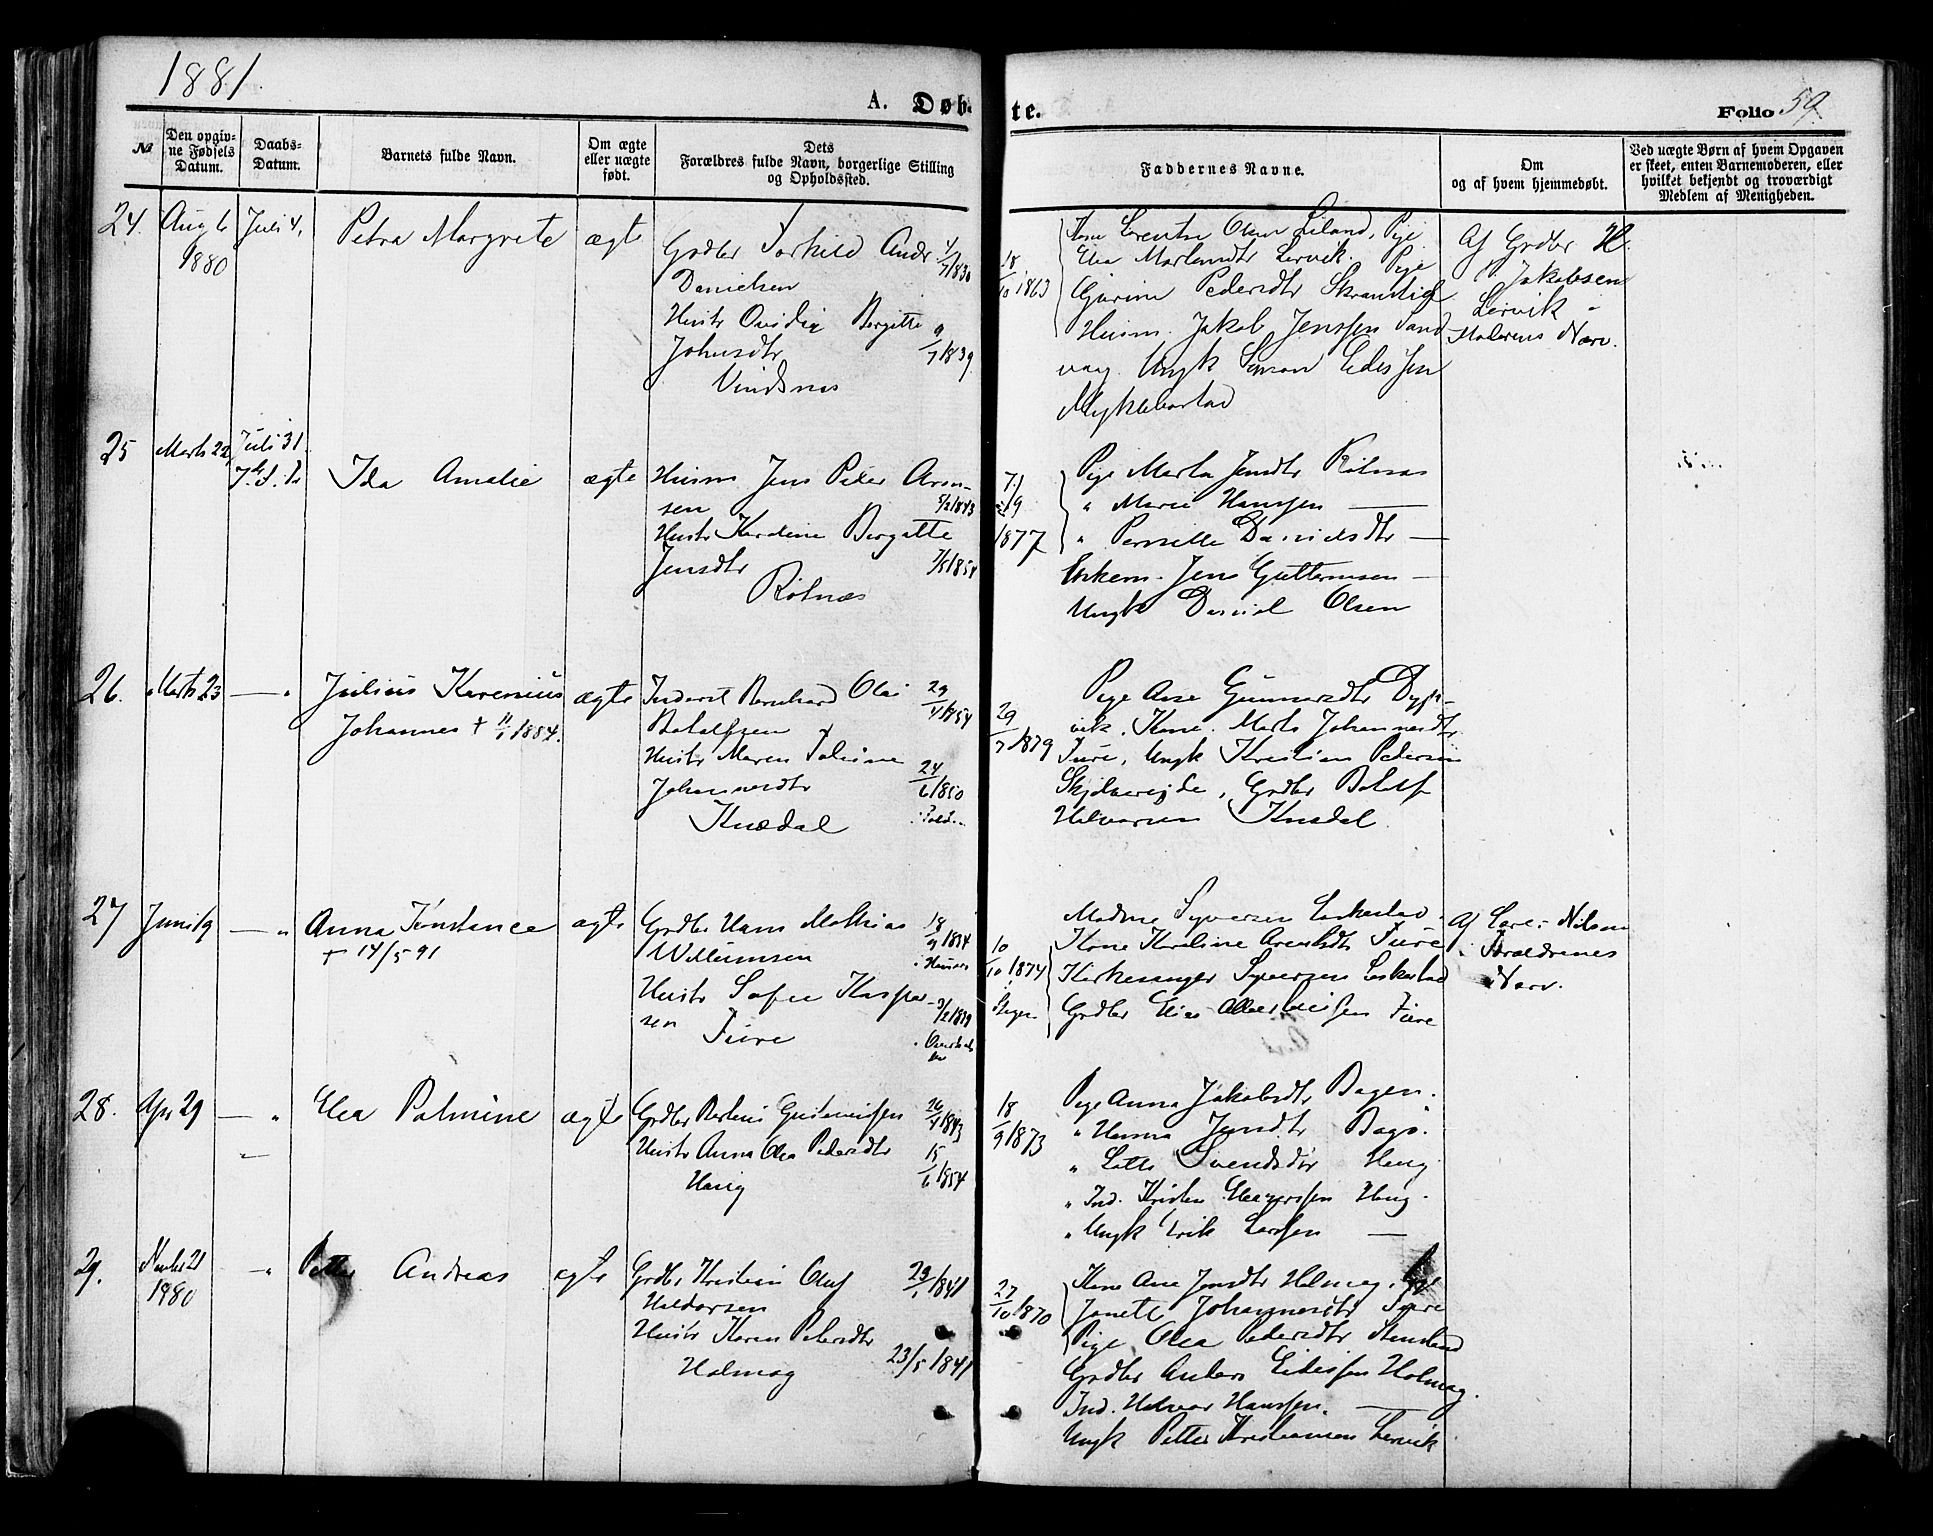 1881.
A. Døb-
te.
Folio 59
№
Den opgiv-
ne Fødsels
Datum.
Daabs-
Datum.
Barnets fulde Navn.
Om ægte
eller uægte
født.
Dets
Forældres fulde Navn, borgerlige Stilling
og Opholdssted.
Faddernes Navne.
Om
og af hvem hjemmedøbt.
Ved uægte Børn af hvem Opgaven
er skeet, enten Barnemoderen, eller
hvilket bekjendt og troværdigt
Medlem af Menigheden.
24.
Aug 6
1880
Juli 4.
Petra Margrete
ægte
Grdbr Torkild Andr
Danielsen
Hustr Ovidia Bergitte
Johnsdtr
9/7 1839
Vindsnes
18/10 1863
Kone Lorentse Olsen Leland, Pige
Elea Martensdtr Lervik. Pige
Gjurine Pedersdtr
Husm. Jakob Jenssen Sand
vaag Ungk Simon Edissen
Myklebostad
Af Grdbr H.
P. Jakobsen
Lervik
Moderens Nærv.
25
Marts 22
Juli 31
Ida Amalie
ægte
Husm Jens Peder Aron-
sen
Hustr Kardine Bergitte
Jensdtr
7/5 1854
Rötnæs
1877
Pige Marta Jensdtr Rötnæs
" Marie Hanssen —
" Pernille Danielsdtr —
Enkem. Jens Guttormsen —
Ungk Daniel Olsen
26.
Marts 23
— "
Julius Korenius
Johannes + 11/1 1884.
ægte
Inderst Bernhard Olai
29/4 1854
Botolfsen
Hustr Maren
Johannesdtr
24/6 1850
Knædal
29/7 1879
Pige Ane Gunnersdtr Dyp-
vik, Kone Marta Johannesdtr
Fure, Ungk Kristian Pedersen
Grdbr Botolf
Halvorsen Knædal.
27
Juni 19
— "
Anna Konstance
+ 14/5 91
ægte
Grdbr Hans Mathias
Willumsen
Hustr Sofie Kaspar-
sen
Fure
10/10 1874
Madme Syversen Laskestad.
Kone Karoline Arentsdtr Fure
Kirkesanger Syversen Laskestad
Grdbr Elias Albertheissen Fure
Af Lære. Nilsen
Foraldrenes
Nærv.
28.
Apr 29
— "
Elea Palmine
ægte
Grdbr Berteus Gustavissen
26/4 1843
Hustr Anna Olea Pedersdtr
15/6 1854
Haug
18/9 1873
Pige Anna Jakobsdtr Bogen.
" Hanna Jensdtr Bogö.
" Lotte Svendsdtr Haug
" Ind. Kristen Haug.
" Ungk Erik Larssen —
29.
Novbr 21
1980
— "
Petter Andreas
ægte
Grdbr Kristian Oluf
23/1 1841
Haldorsen
Hustr Karen Petersdtr
23/5 1841
Holmag
27/10 1870
Kone Ane Jensdtr Holmag,
Janett Johannesdtr Fure
Pige Olea Pedersdtr
Grdbr Anders Edissen Holmag.
Ind. Halvor Hanssen. —
Ungk Petter Kristiansen Lervik